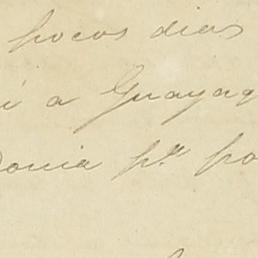 pocos dias
i a Guayaq
onia pr. po